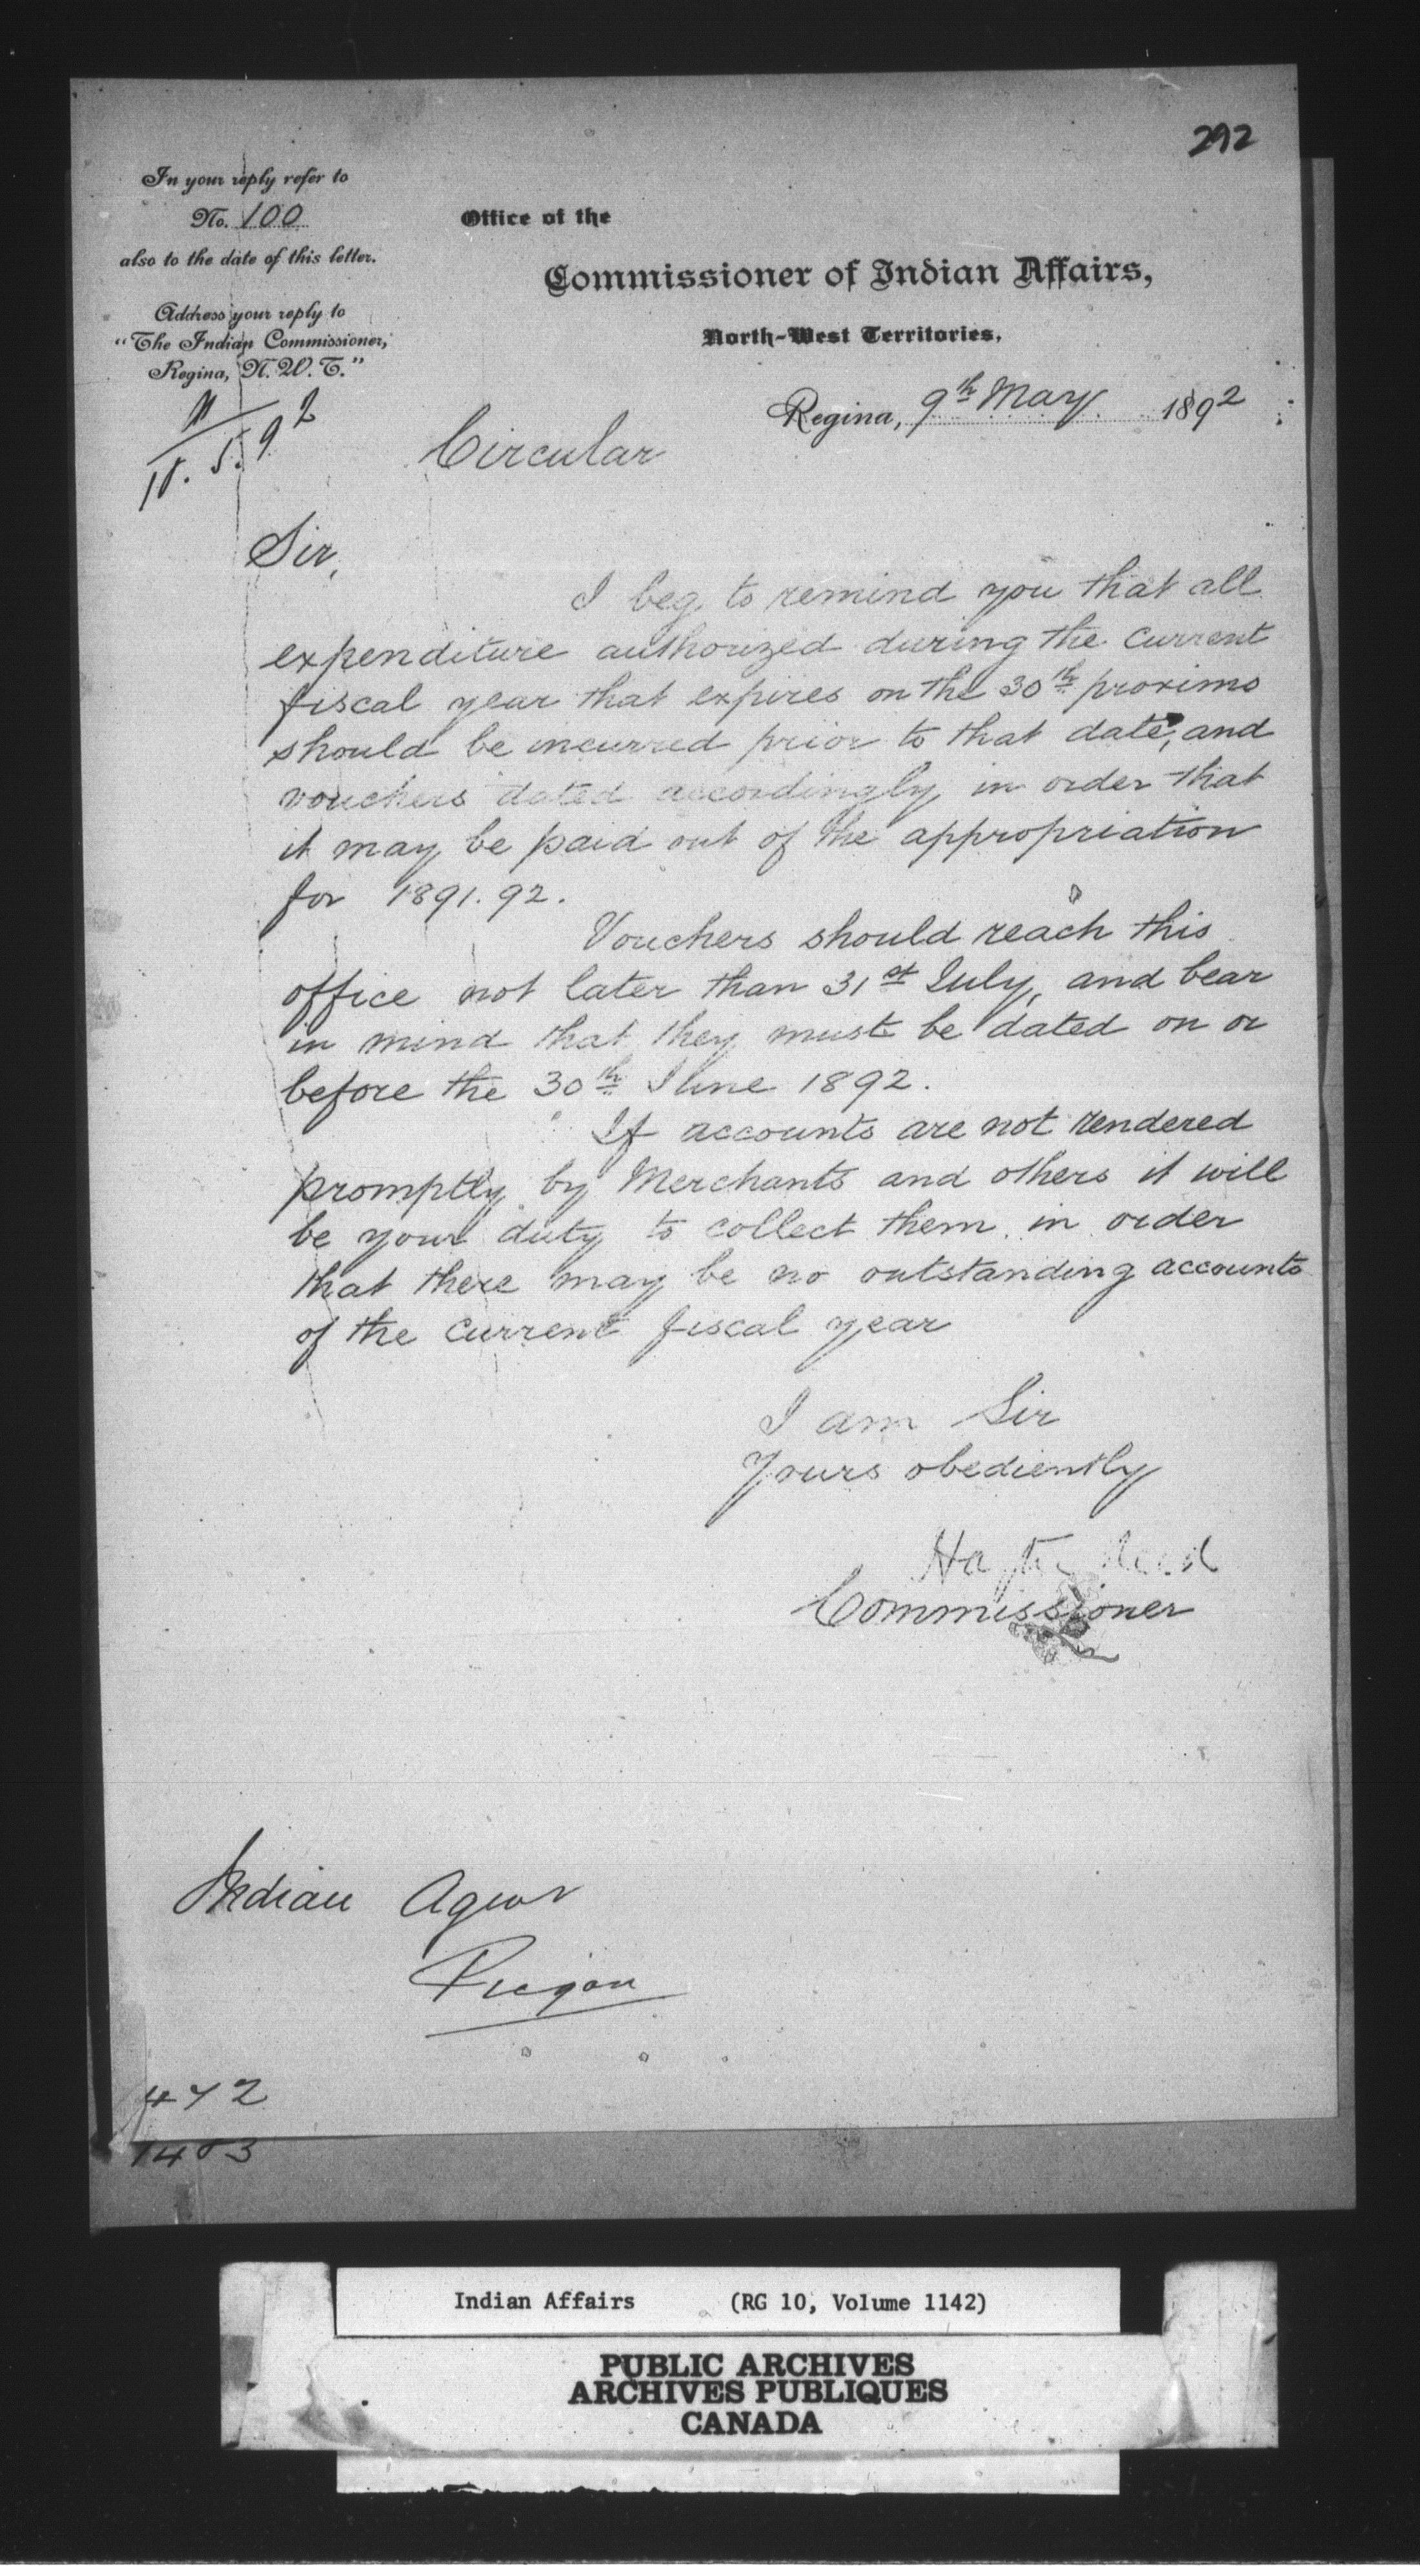 292
In your reply refer to
No. 100
also to the date of this letter.
Address your reply to
"The Indian Commissioner,
Regina, N. W. T."
Office of the
Commissioner of Indian Affairs,
North-West Territories.
Regina, 9th May 1892
Circular
Sir,
I beg to remind you that all
expenditure authorized during the current
fiscal year that expires on the 30th proximo
should be incurred prior to that date, and
vouchers dated accordingly in order that
it may be paid out of the appropriation
for 1891.92.
Vouchers should reach this
office not later than 31st July, and bear
in mind that they must be dated on or
before the 30th June 1892.
If accounts are not rendered
promptly by Merchants and others it will
be your duty to collect them in order
that there may be no outstanding accounts
of the current fiscal year
I am Sir
Yours obediently
Hayter Reed
Commissioner
Indian Agent
Piegan
472
Indian Affairs (RG 10, Volume 1142)
PUBLIC ARCHIVES
ARCHIVES PUBLIQUES
CANADA